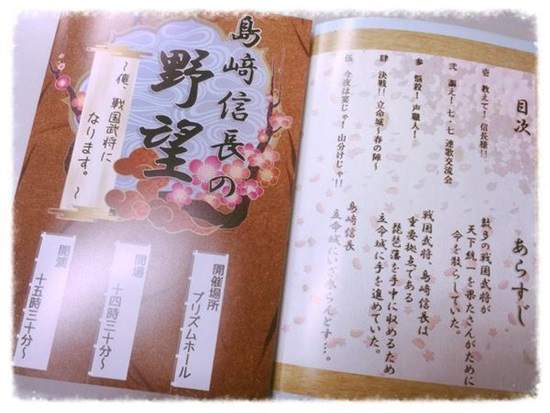 目次
壱 教えて!信長様!!
弐 謳え!七・七 連歌交流会
参 悩殺!声職人!
肆 決戦!!立命城~春の陣~
伍 今夜は宴じゃ!山分けじゃ!!
あらすじ
数多の戦国武将が
天下統一を果たさんがために
命を散らしていた。
戦国武将、島﨑信長は
重要拠点である
琵琶藩を手中に収めるため
立命城に手を進めていた。
島﨑信長
立命城にいざ参らんとす…。
島﨑信長の
野望
~俺、戦国武将に
なります。~
開催場所
プリズムホール
開場
十四時三十分~
開演
十五時三十分~